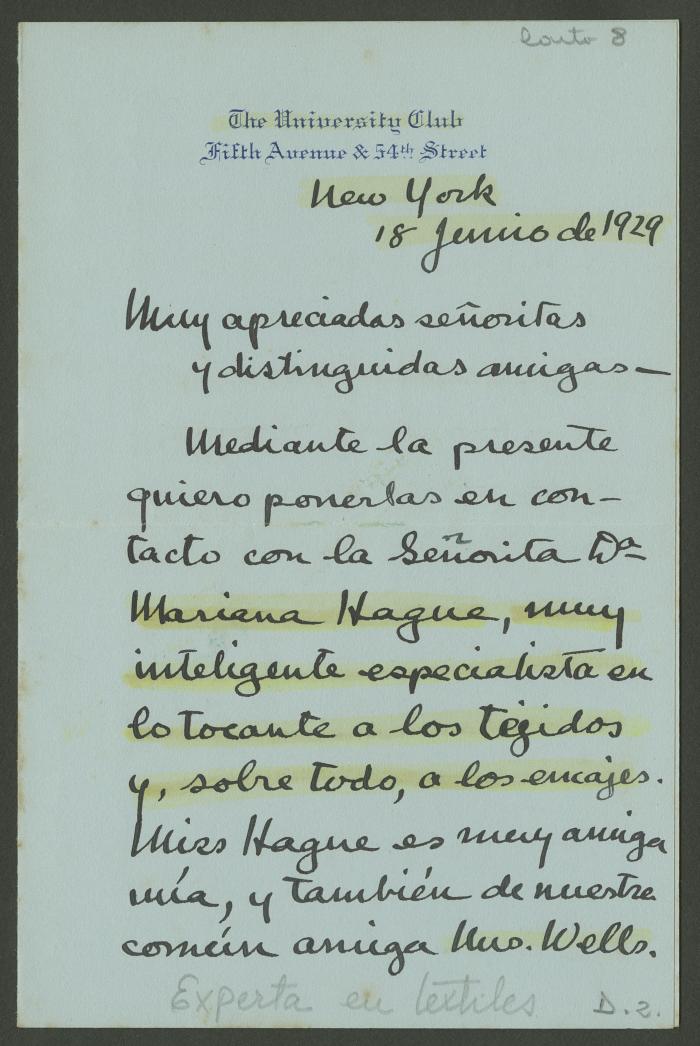 8
The University Club
Fifth Avenue & 54th Street
New York
18 Junio de 1929
Muy apreciadas señoritas
y distinguidas amigas—
Mediante la presente
quiero ponerlas en con-
tacto con la Señorita Dª
Mariana Hague, muy
inteligente especialista en
lo tocante a los tejidos
y, sobre todo, a los encajes.
Miss Hague es muy amiga
mía, y también de nuestra
común amiga Mrs. Wells.
Experta en textiles
D.2.